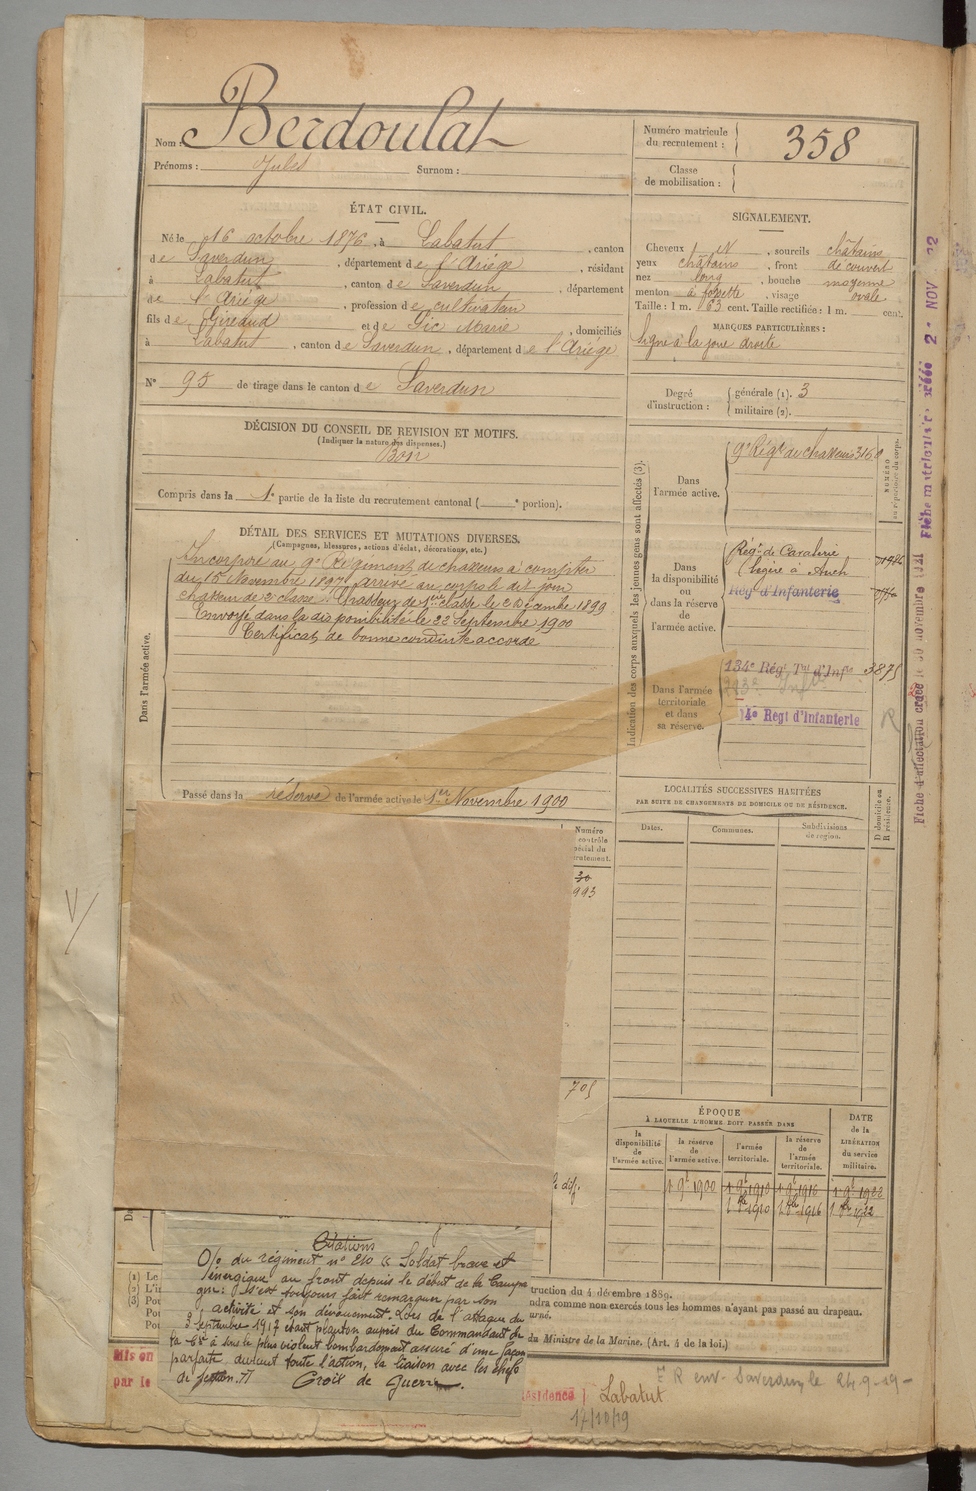 Nom : Berdoulat
Prénoms : Jules Surnom :
Numéro matricule du recrutement : 358
Classe de mobilisation :
ÉTAT CIVIL.
Né le 16 octobre 1876, à Labatut, canton
de Saverdun, département de l'Ariège, résidant
à Labatut, canton de Saverdun, département
de l'Ariège, profession de cultivateur
fils de Giraud et de Sic Marie, domiciliés
à Labatut, canton de Saverdun, département de l'Ariège
N° 95 de tirage dans le canton de Saverdun
SIGNALEMENT.
Cheveux et, sourcils châtains
yeux châtains, front découvert
nez long, bouche moyenne
menton à fossette, visage ovale
Taille : 1 m. 63 cent. Taille rectifiée : 1 m. cent.
MARQUES PARTICULIÈRES :
signe à la joue droite
Degré d'instruction : générale (1). 3
militaire (2).
DÉCISION DU CONSEIL DE REVISION ET MOTIFS.
(Indiquer la nature des dispenses.)
Bon
Compris dans la 1e partie de la liste du recrutement cantonal ( e portion).
DÉTAIL DES SERVICES ET MUTATIONS DIVERSES.
(Campagnes, blessures, actions d'éclat, décorations, etc.)
Dans l'armée active.
Incorporé au 9e Régiment de chasseurs à compter
du 15 Novembre 1897, arrivé au corps le dit jour
chasseur de 2e classe. Chasseur de 1ère classe le 2 Décembre 1899
Envoyé dans la disponibilité le 22 Septembre 1900
Certificat de bonne conduite accordé
Passé dans la réserve de l'armée active le 1er Novembre 1900
Indication des corps auxquels les jeunes gens sont affectés (3).
Dans l'armée active.
9e Régt de chasseurs 3160
NUMÉRO au répertoire du corps.
Dans la disponibilité ou dans la réserve de l'armée active.
Régt de Cavalerie
légère à Auch
Régt d'Infanterie
Dans l'armée territoriale et dans sa réserve.
134e Régt Tal d'Infie 3875
14e Régt d'Infanterie
R
LOCALITÉS SUCCESSIVES HABITÉES
PAR SUITE DE CHANGEMENTS DE DOMICILE OU DE RÉSIDENCE.
Dates. Communes. Subdivisions de région. D domicile ou R résidence.
Numéro
contrôle
spécial du
recrutement.
993
705
ÉPOQUE
À LAQUELLE L'HOMME DOIT PASSER DANS
la disponibilité de l'armée active. la réserve de l'armée active. l'armée territoriale. la réserve de l'armée territoriale.
DATE de la LIBÉRATION du service militaire.
1 9e 1900 1 9e 1910 1 9e 1916 1 9e 1922
1 8e 1910 1 8e 1916 1 8e 1922
Citations
O/ du régiment n° 210 « Soldat brave et
énergique au front depuis le début de la Campa
gne : s'est toujours fait remarquer par son
activité et son dévouement. Lors de l'attaque du
3 septembre 1917 étant planton auprès du Commandant de
la Cie à sous le plus violent bombardement assuré d'une façon
parfaite, durant toute l'action, la liaison avec les chefs
de section. »
Croix de Guerre.
(1) Le
(2) L'in
(3) Pou
Pou
truction du 4 décembre 1889.
ndra comme non exercés tous les hommes n'ayant pas passé au drapeau.
urné.
du Ministre de la Marine. (Art. 4 de la loi.)
Mis en
par le
ésidence
Labatut
17/10/19
R env. Saverdun, le 24-9-19-
Fiche d'affectation créée le 30 novembre 1921
Fiche matriculaire créée 2 - NOV
V/